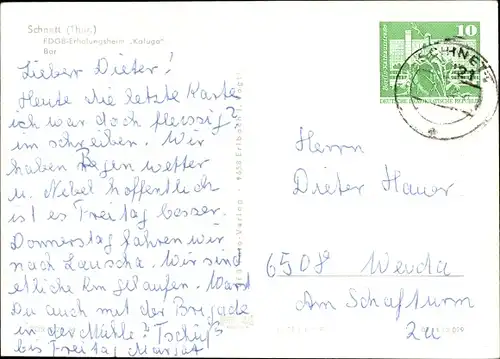 Schnett (Thür.)
FDGB-Erholungsheim „Kaluga"
Bar
Lieber Dieter!
Heute die letzte Karte
ich war doch fleissig?
im schreiben. Wir
haben Regen wetter
u. Nebel hoffentlich
ist es Freitag besser.
Donnerstag fahren wir
nach Lauscha. Wir sind
etliche Km gelaufen. Warst
Du auch mit der Brigade
in der Mühle? Tschüß
bis Freitag
10
DEUTSCHE DEMOKRATISCHE REPUBLIK
Herrn
Dieter Hauer
6508 Weida
Am Schafturm
2a